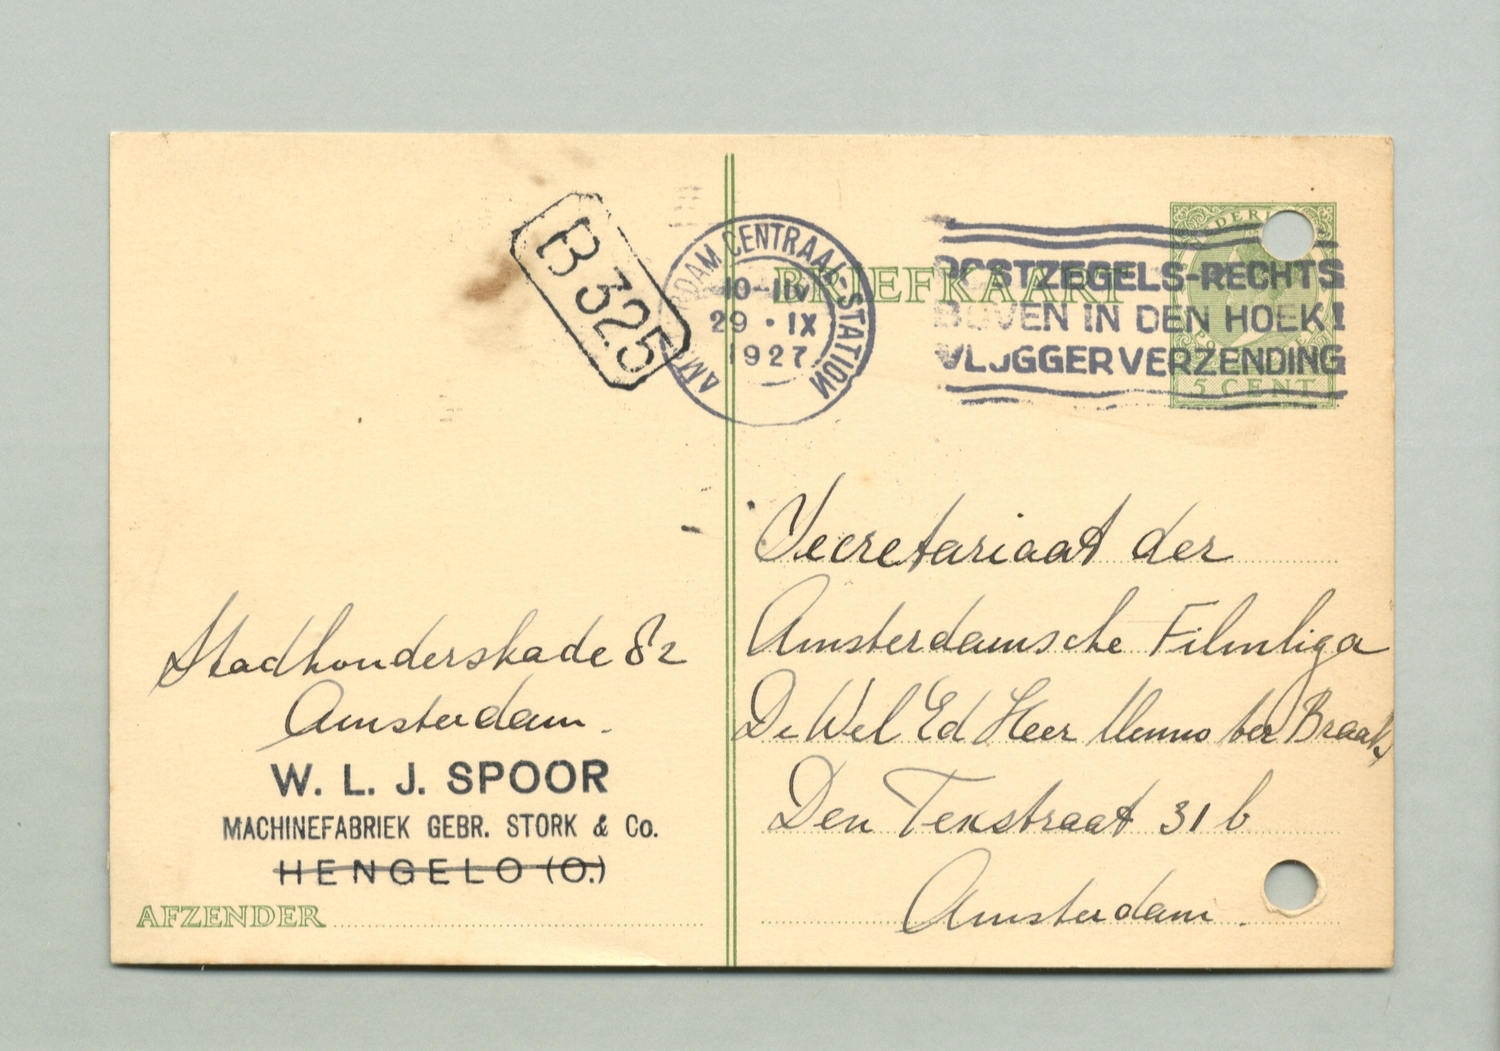 B 325
AMSTERDAM CENTRAAL-STATION
29 · IX
1927
POSTZEGELS-RECHTS
BOVEN IN DEN HOEK!
VLUGGER VERZENDING
BRIEFKAART
5 CENT
Secretariaat der
Amsterdamsche Filmliga
De Wel Ed Heer Menno ter Braak,
Den Texstraat 31 b
Amsterdam.
Stadhouderskade 82
Amsterdam.
W. L. J. SPOOR
MACHINEFABRIEK GEBR. STORK & Co.
HENGELO (O.)
AFZENDER